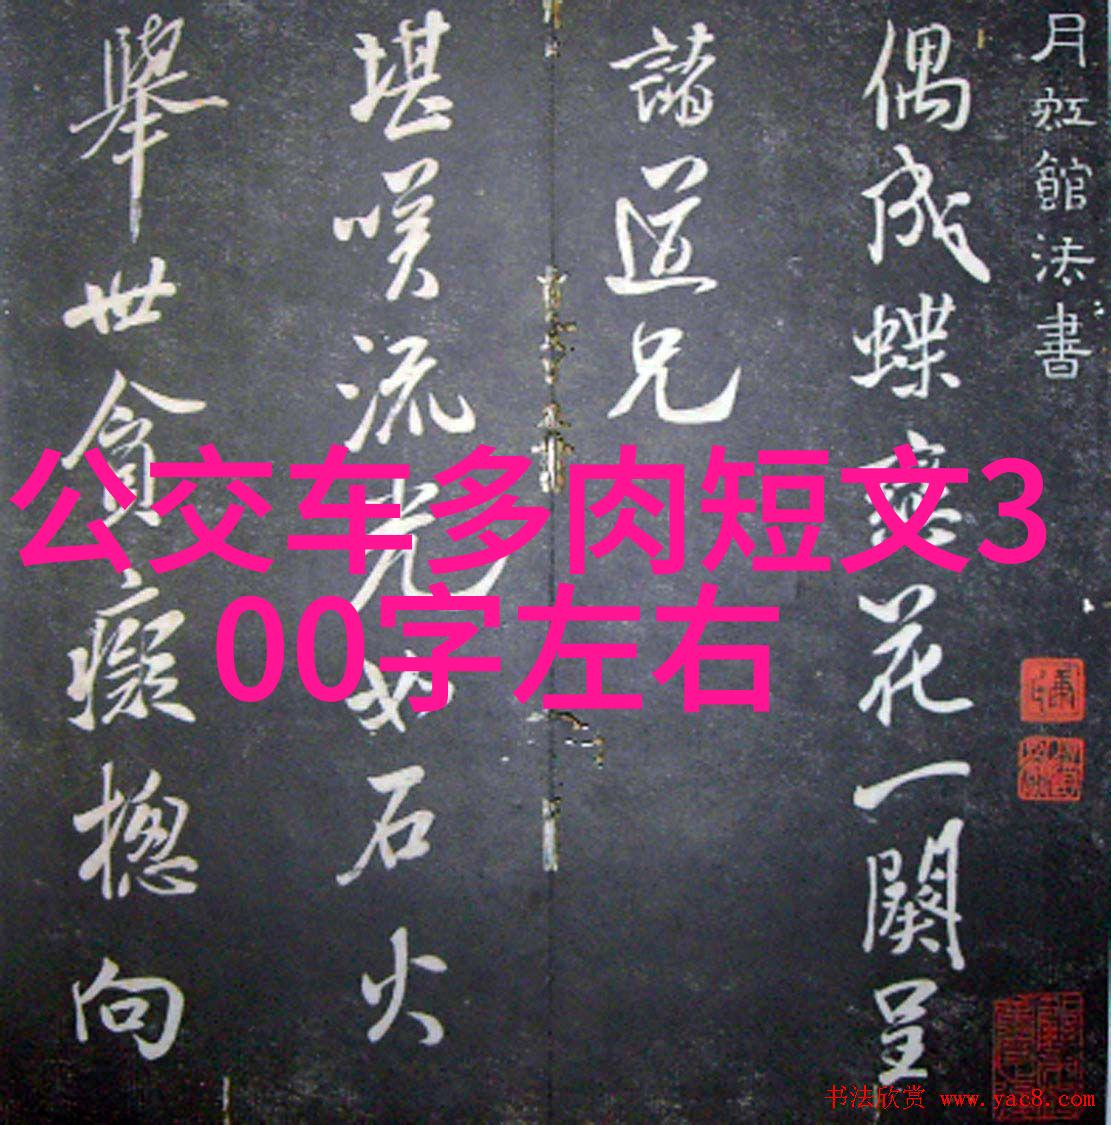 月虹館法書
偶成蝶戀花一闋呈
諸道兄
堪嘆流光如石火
舉世貪癡摠向
公交车多肉短文3
00字左右
书法欣赏 www.yac8.com